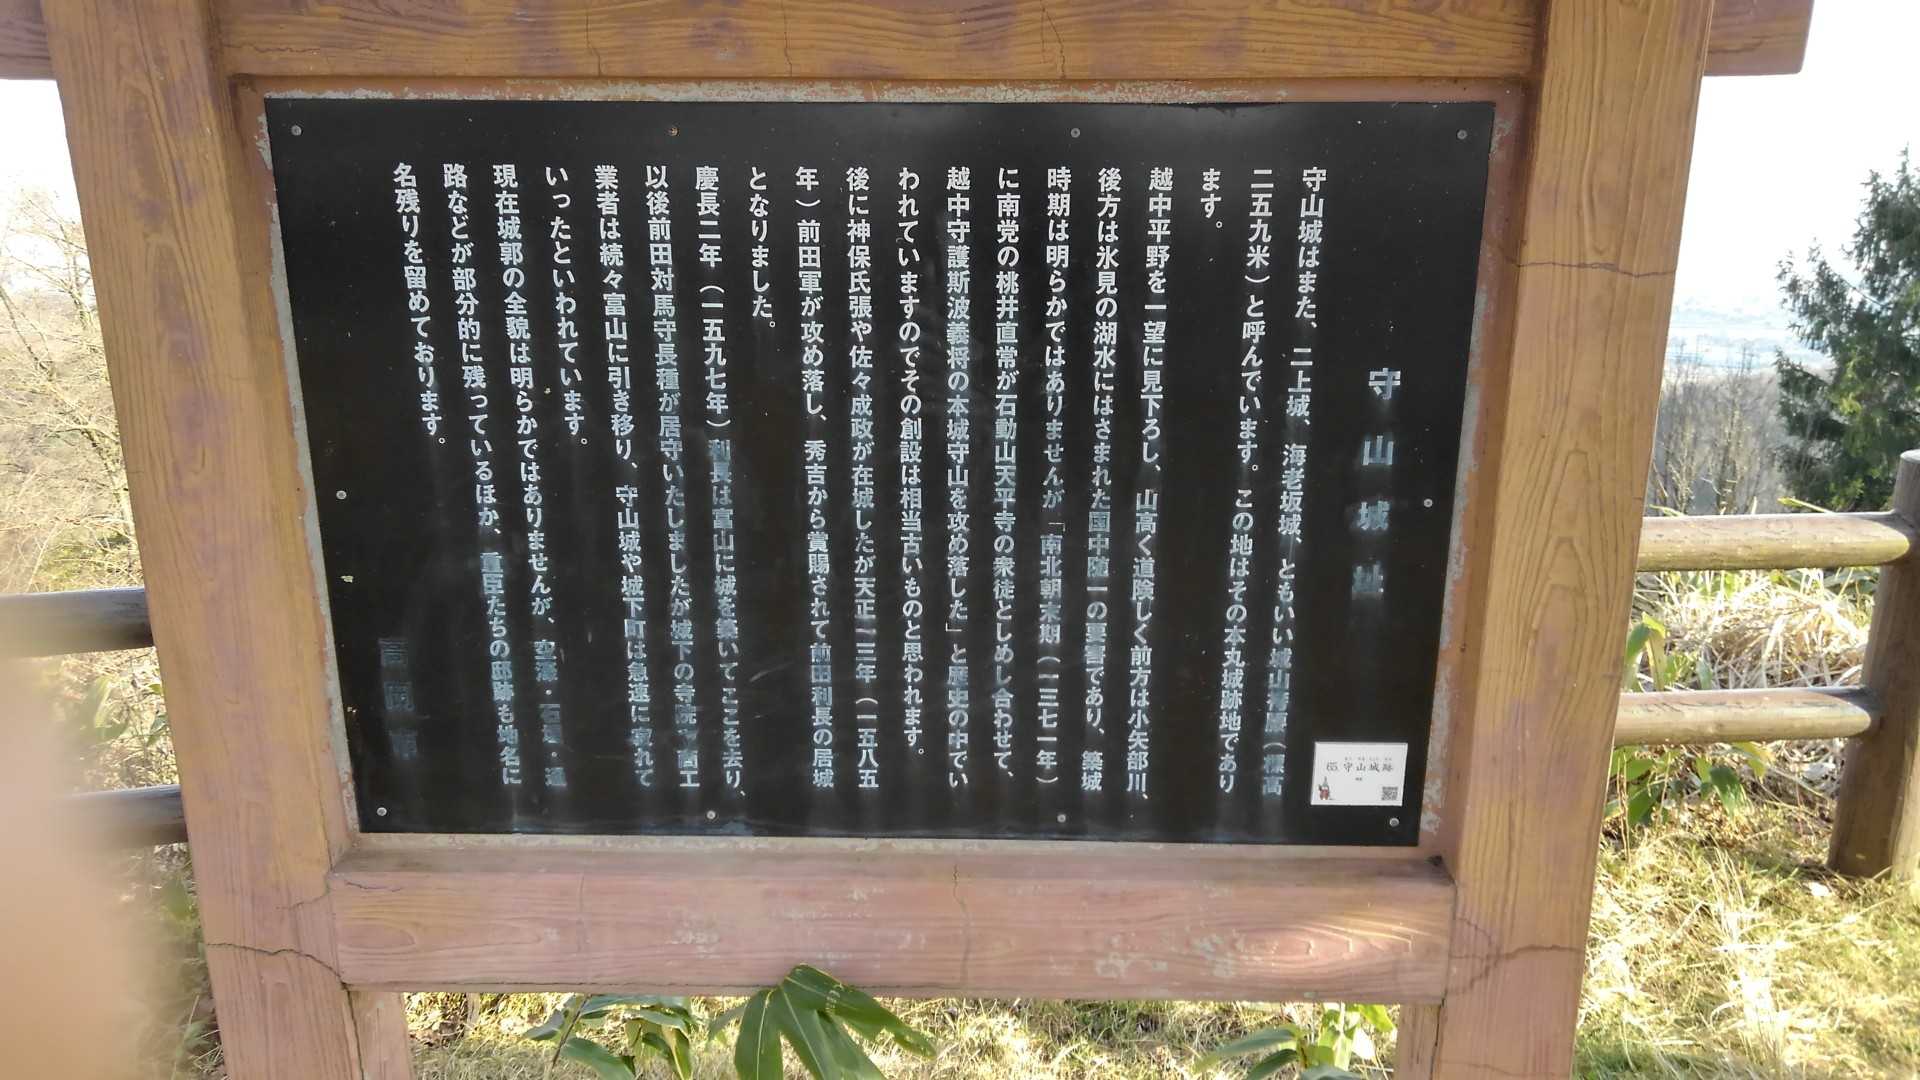 守山城址
守山城はまた、二上城、海老坂城、ともいい城山脊原（標高
二五九米）と呼んでいます。この地はその本丸城跡地であり
ます。
越中平野を一望に見下ろし、山高く道険しく前方は小矢部川、
後方は氷見の湖水にはさまれた国中随一の要害であり、築城
時期は明らかではありませんが「南北朝末期（一三七一年）
に南党の桃井直常が石動山天平寺の衆徒としめし合わせて、
越中守護斯波義将の本城守山を攻め落した」と歴史の中でい
われていますのでその創設は相当古いものと思われます。
後に神保氏張や佐々成政が在城したが天正一三年（一五八五
年）前田軍が攻め落し、秀吉から賞賜されて前田利長の居城
となりました。
慶長二年（一五九七年）利長は富山に城を築いてここを去り、
以後前田対馬守長種が居守いたしましたが城下の寺院や商工
業者は続々富山に引き移り、守山城や城下町は急速に寂れて
いったといわれています。
現在城郭の全貌は明らかではありませんが、空濠・石塁・通
路などが部分的に残っているほか、重臣たちの邸跡も地名に
名残りを留めております。
高岡市
65.守山城跡